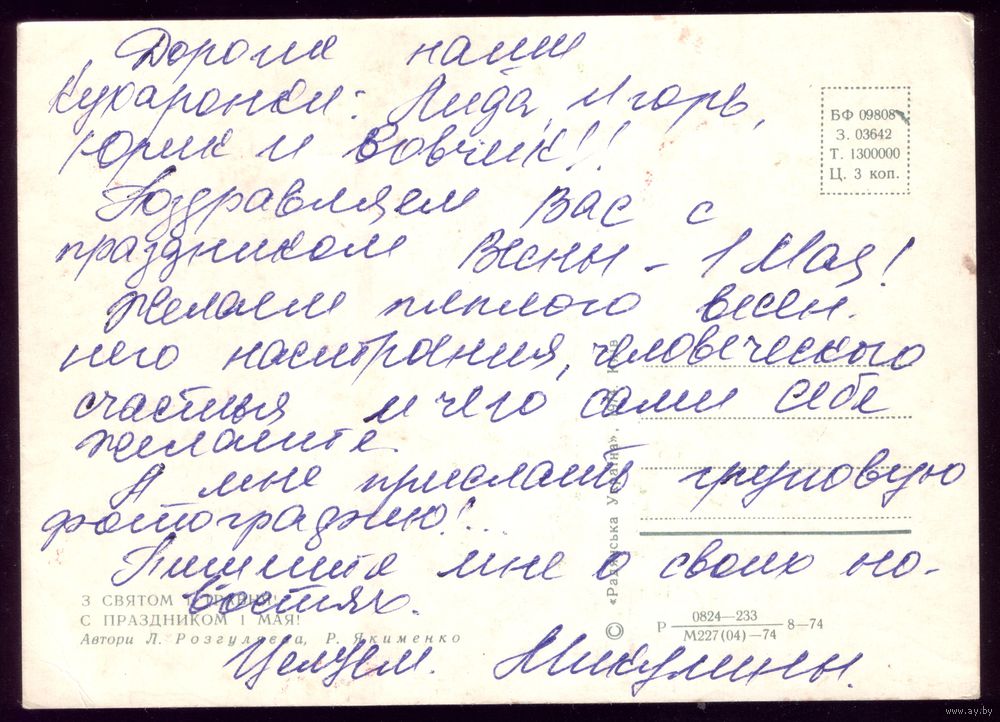 Дорогие наши
Кухаронки: Лида, Игорь,
Юрик и Вовчик!!
Поздравляем Вас с
праздником Весны – 1 Мая!
Желаем теплого весен-
него настроения, человеческого
счастья и чего сами себе
желаете
А мне прислать групповую
фотографию!..
Пишите мне о своих но-
востях.
Целуем. Микулины.
БФ 09808
З. 03642
Т. 1300000
Ц. 3 коп.
З СВЯТОМ 1 ТРАВНЯ!
С ПРАЗДНИКОМ 1 МАЯ!
Автори Л. Розгуляева, Р. Якименко
© «Радянська Україна», Київ
Р 0824—233 8—74
М227(04)—74
www.ay.by